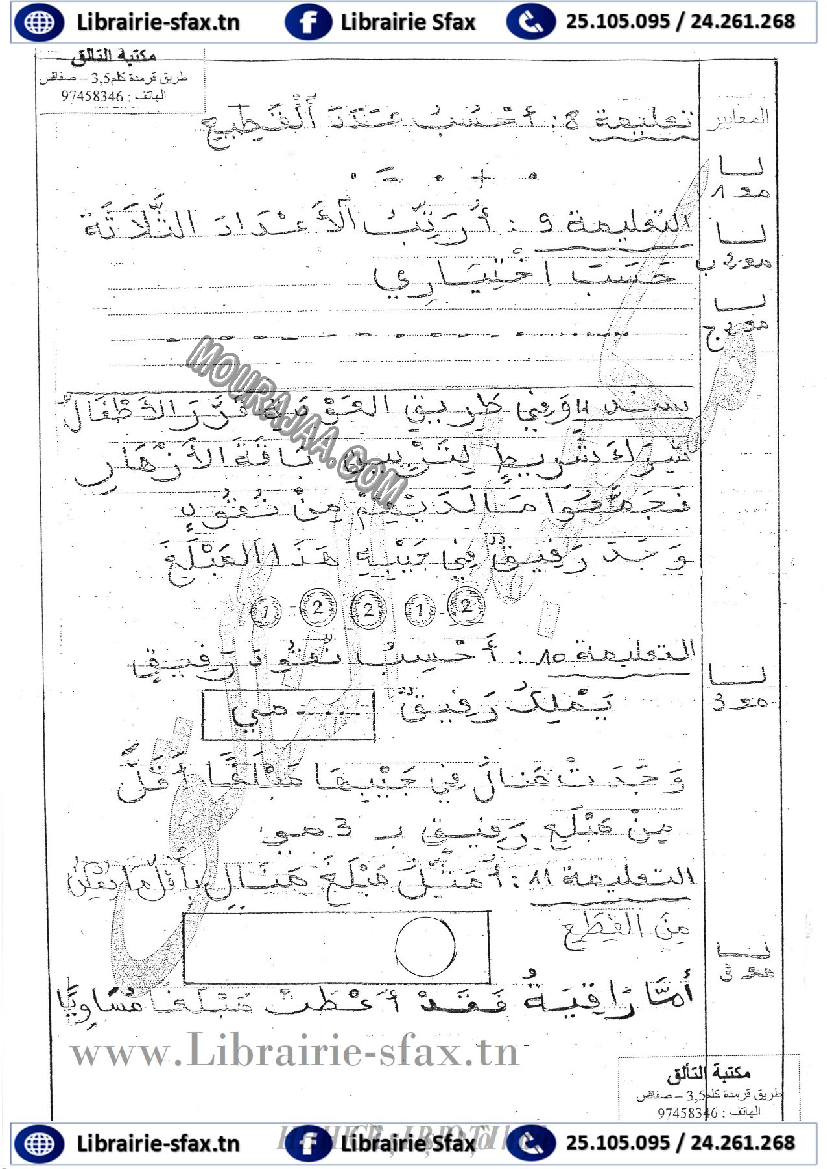 Librairie-sfax.tn Librairie Sfax 25.105.095 / 24.261.268
مكتبة التالق
طريق قرمدة كلم3,5 – صفاقص
الهاتف : 97458346
المعايير
تعليمة 8 : أَحْسُبُ عَدَدَ الْقَطِيعِ
. + . = .
مع 1
التعليمة 9 : أُرَتِّبُ الأَعْدَادَ الثَّلَاثَةَ
حَسَبَ اخْتِيَارِي
سند 4 وَفِي طَرِيقِ العَوْدَةِ قَرَّرَ الأَطْفَالُ
شِرَاءَ شَرِيطٍ لِتَزْيِينِ بَاقَةَ الأَزْهَارِ
فَجَمَّعُوا مَا لَدَيْهِمْ مِنْ نُقُودٍ
وَجَدَ رَفِيقٌ فِي جَيْبِهِ هَذَا المَبْلَغَ
1 2 2 1 2
التعليمة 10 : أَحْسِبُ نُقُودَ رَفِيقٍ
مع 3
يَمْلِكُ رَفِيقٌ ..... مي
وَجَدَتْ مَنَالُ فِي جَيْبِهَا مَبْلَغًا أَقَلَّ
مِنْ مَبْلَغِ رَفِيقٍ بـ 3 مي
التعليمة 11 : أُمَثِّلُ مَبْلَغَ مَنَالِ بِأَقَلِّ مَا يُمْكِنُ
مِنَ القِطَعِ
أَمَّا رَاقِيَةُ فَقَدْ أَعْطَتْ مَبْلَغًا مُسَاوِيًا
MOURAJAA.COM
www.Librairie-sfax.tn
مكتبة التألق
طريق قرمدة كلم3,5 – صفاقص
الهاتف : 97458346
Librairie-sfax.tn Librairie Sfax 25.105.095 / 24.261.268